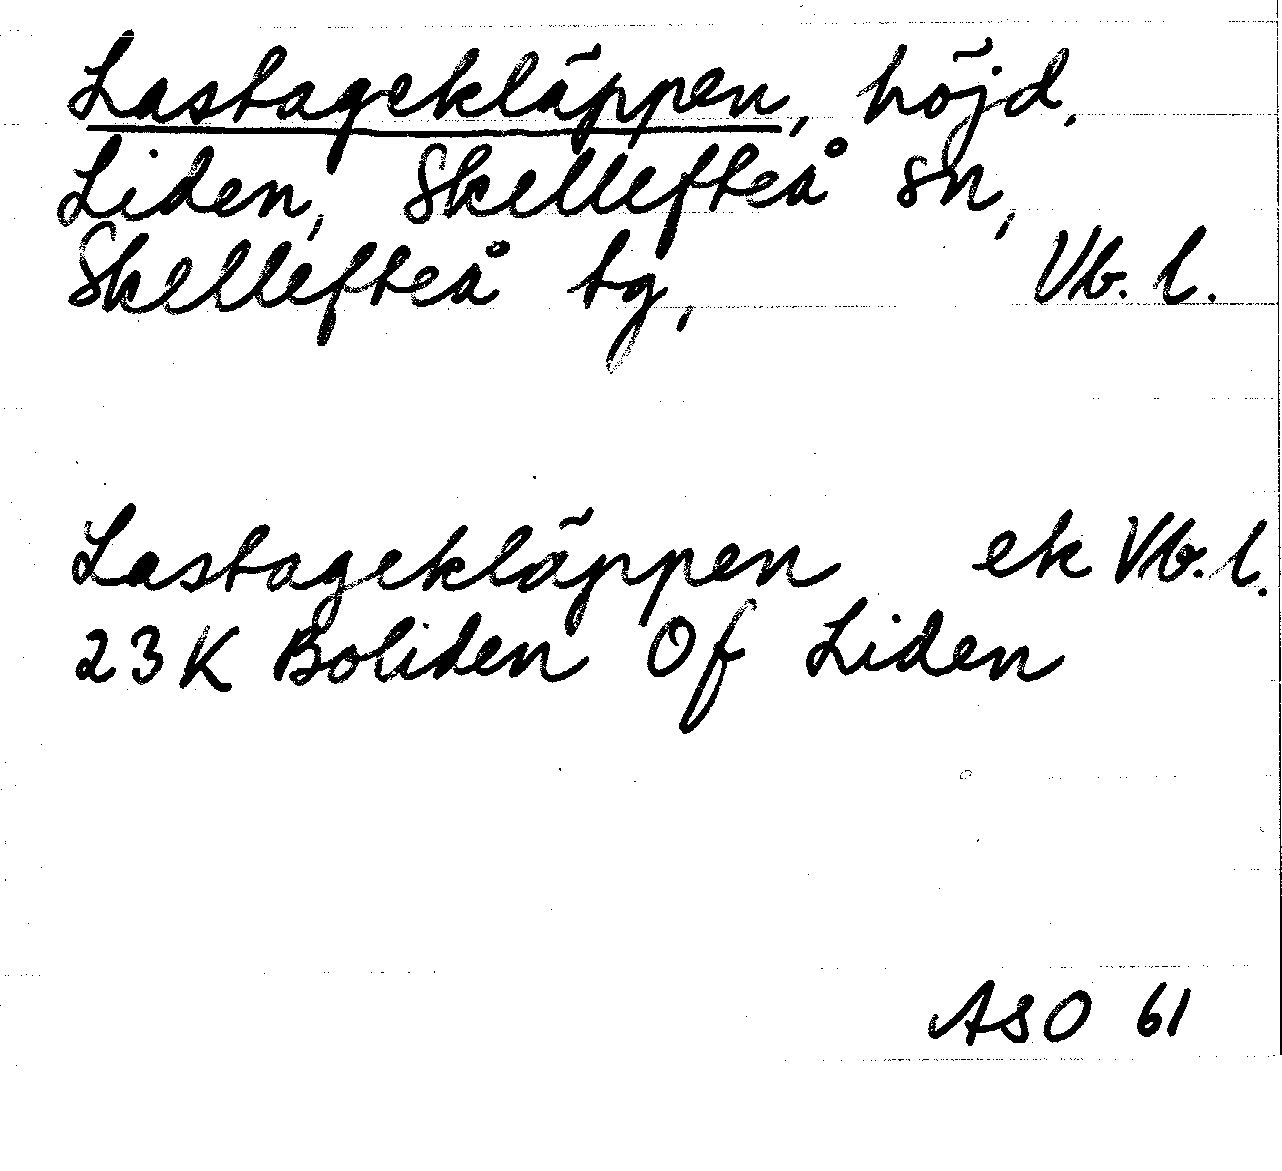 Lastagekläppen, höjd,
Liden, Skellefteå sn,
Skellefteå tg, Vb. l.
Lastagekläppen ek Vb. l.
23K Boliden Of Liden
ASO 61